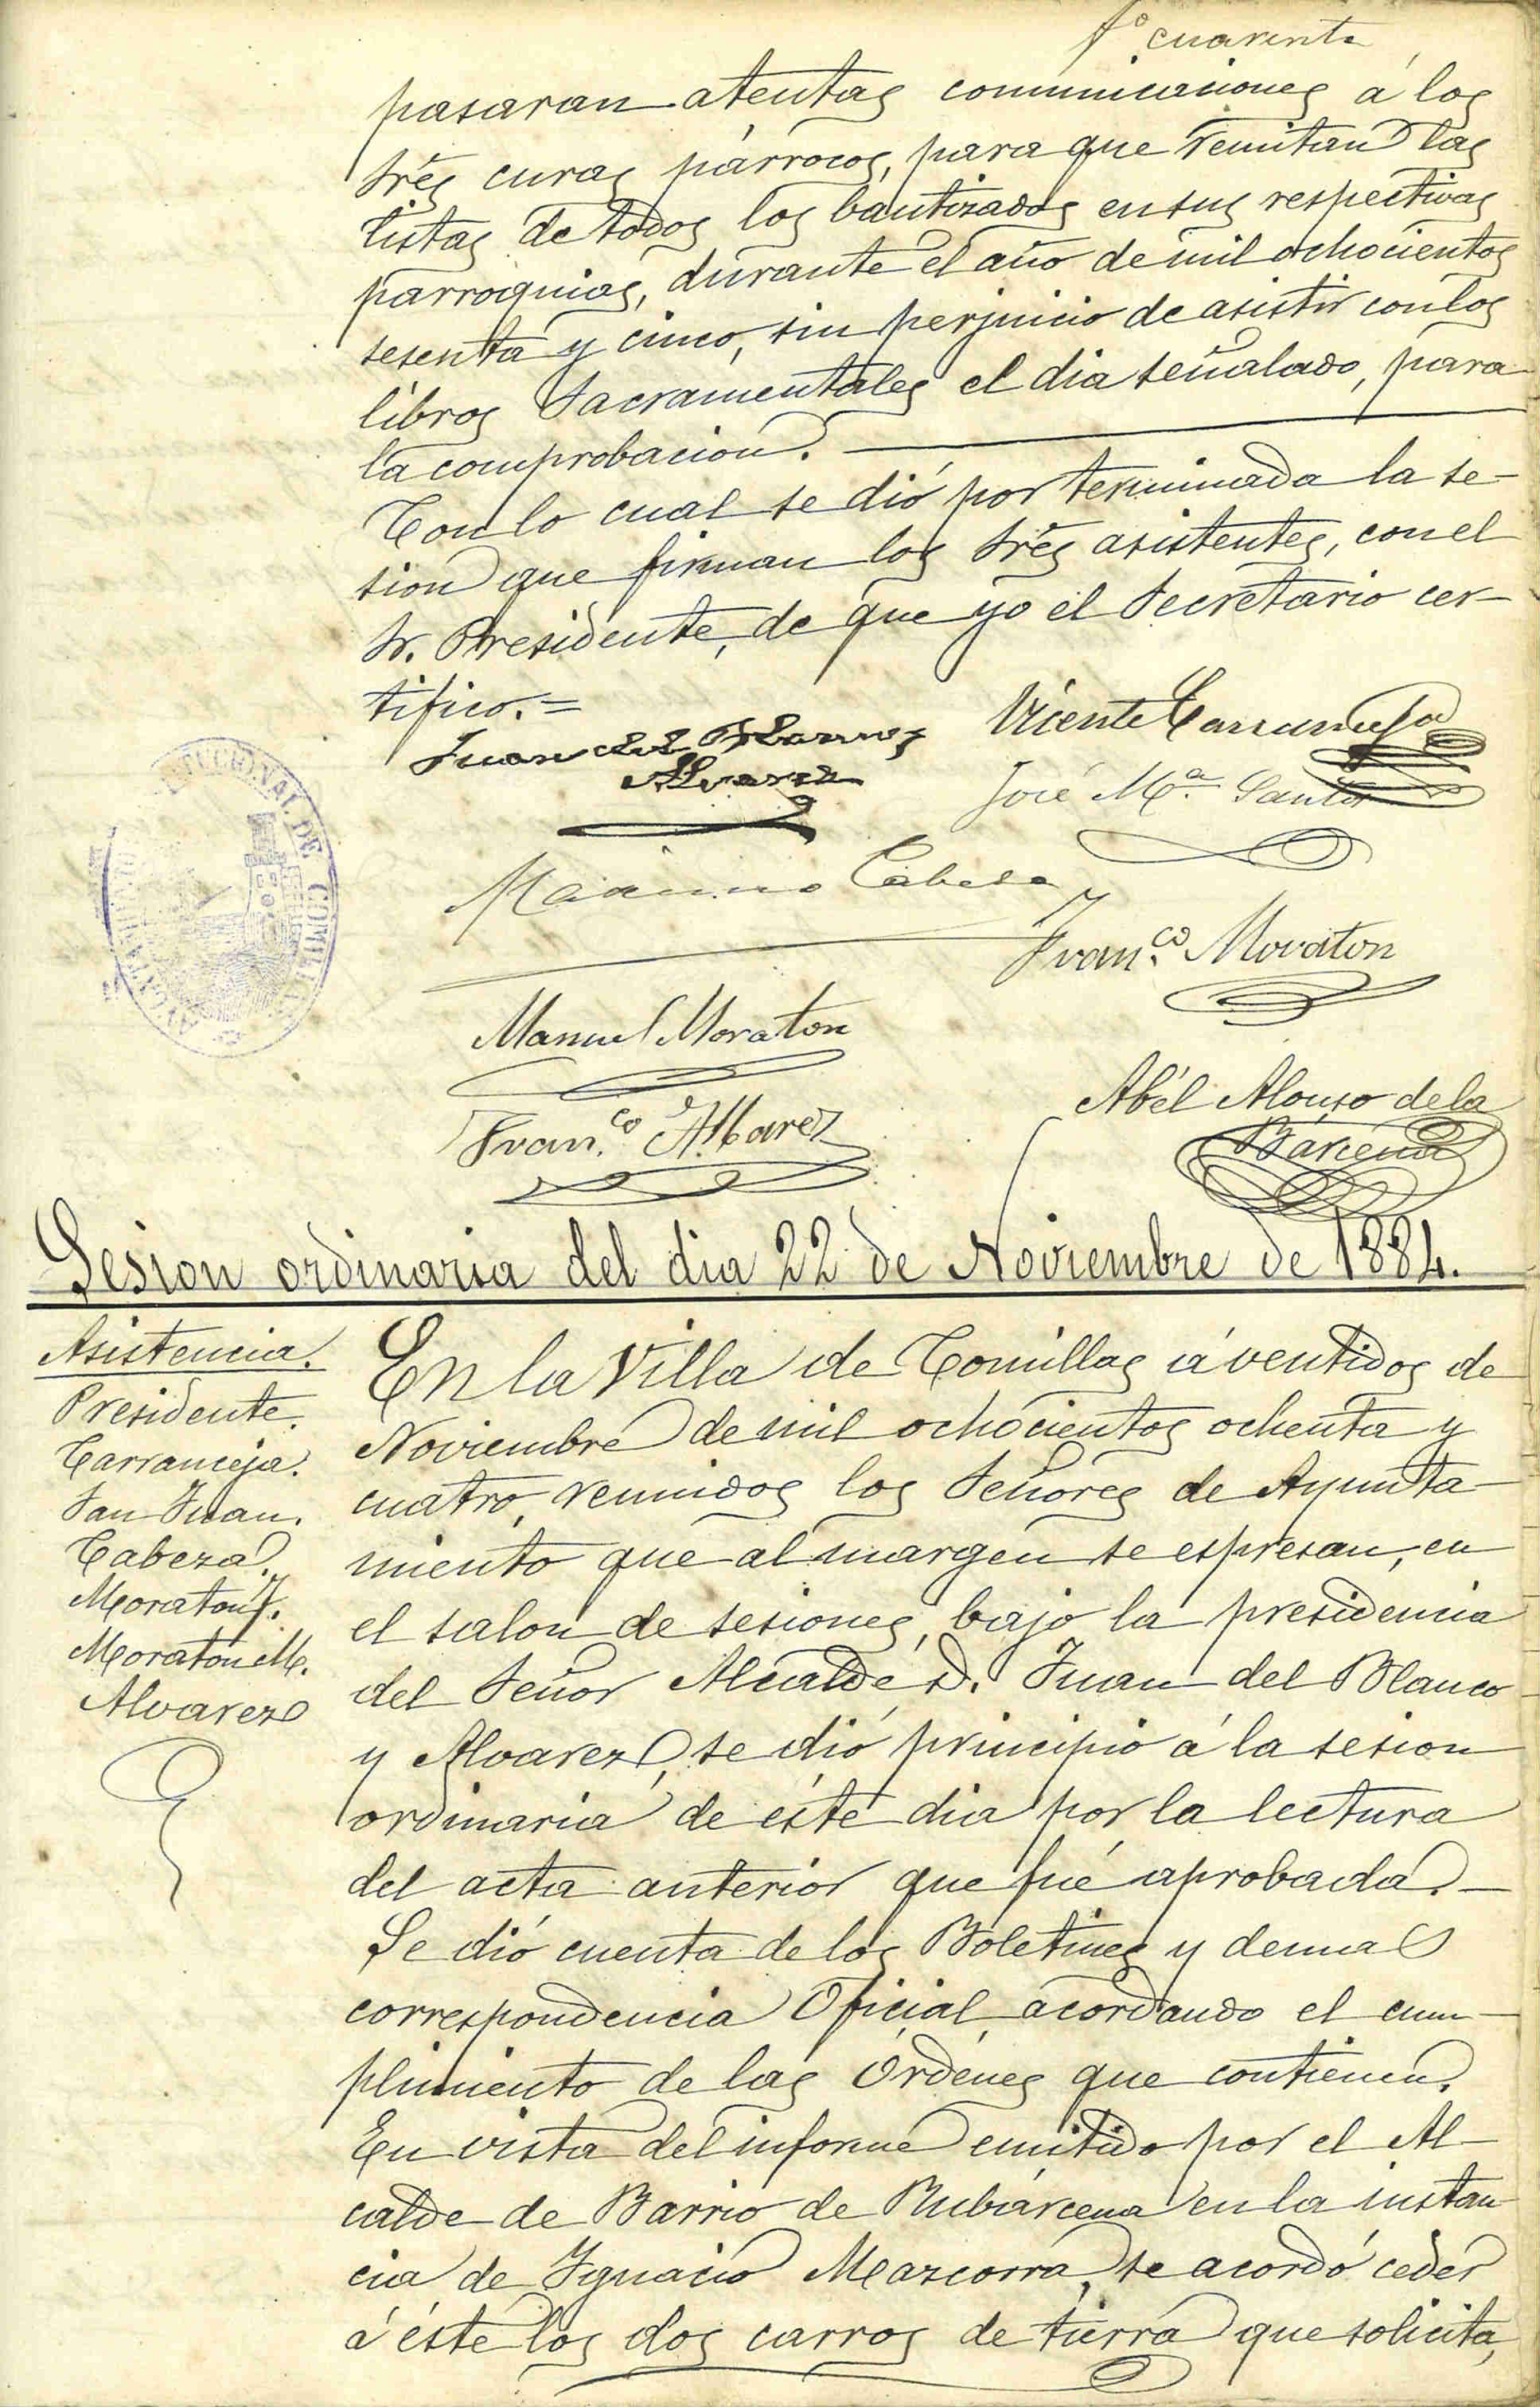 fº. cuarenta
pasaran atentas comunicaciones á los
Sres curas párrocos, para que remitan las
listas de todos los bautizados en sus respectivas
parroquias, durante el año de mil ochocientos
sesenta y cinco, sin perjuicio de asistir con los
libros Sacramentales el dia señalado, para
la comprobacion.
Con lo cual se dió por terminada la se-
sion que firman los Sres asistentes, con el
Sr. Presidente, de que yo el Secretario cer-
tifico.=
Juan del Blanco y
Alvarez
Vicente Carranceja
José Mª. Santos
AYUNTAMIENTO CONSTITUCIONAL DE COMILLAS
Maximo Cabeza
Franco. Moraton
Manuel Moraton
Abél Alonso de la
Bárcena
Franco. Albarez
Sesion ordinaria del dia 22 de Noviembre de 1884.
Asistencia.
Presidente.
Carranceja.
San Juan.
Cabeza.
Moraton F.
Moraton M.
Alvarez
En la Villa de Comillas á ventidos de
Noviembre de mil ochocientos ochenta y
cuatro, reunidos los Señores de Ayunta-
miento que al margen se espresan, en
el salon de sesiones, bajo la presidencia
del Señor Alcalde D. Juan del Blanco
y Alvarez, se dió principio á la sesion
ordinaria de éste dia por la lectura
del acta anterior que fué aprobada.-
Se dió cuenta de los Boletines y demas
correspondencia Oficial, acordando el cum-
plimiento de las Órdenes que contienen.
En vista del informe emitido por el Al-
calde de Barrio de Rubárcena en la instan
cia de Ygnacio Mazcorra, se acordó ceder
á éste los dos carros de tierra que solicita,